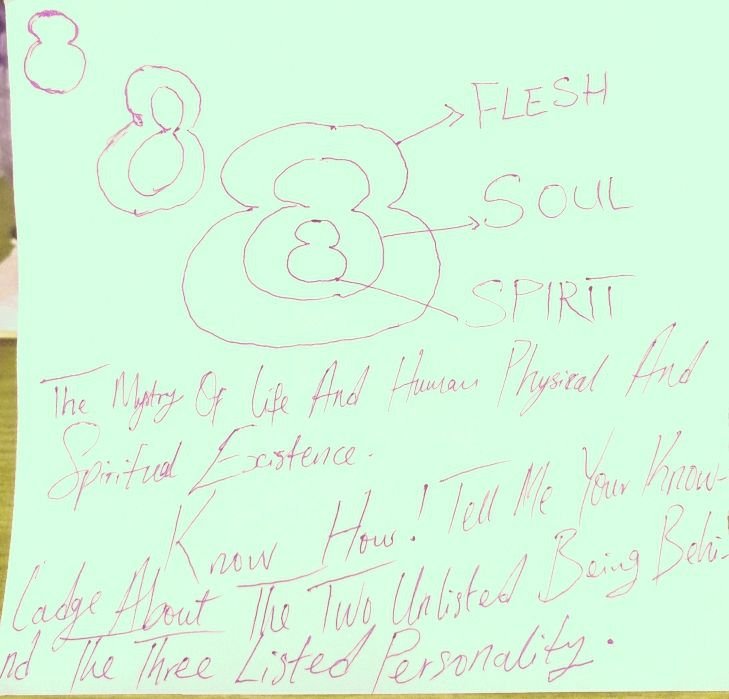 8
8
8
FLESH
SOUL
SPIRIT
The Mystry Of Life And Human Physical And
Spiritual Existence.
Know How! Tell Me Your Know-
ladge About The Two Unlisted Being Behi-
nd The Three Listed Personality.